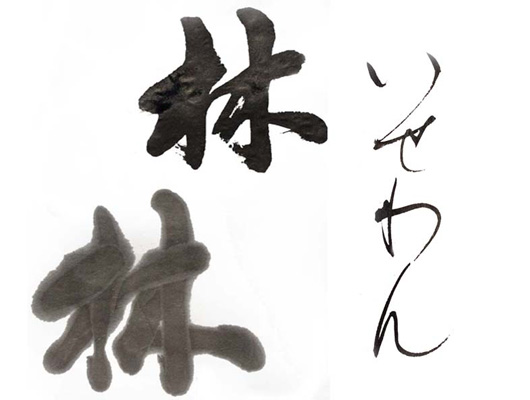 林
林
いせわん